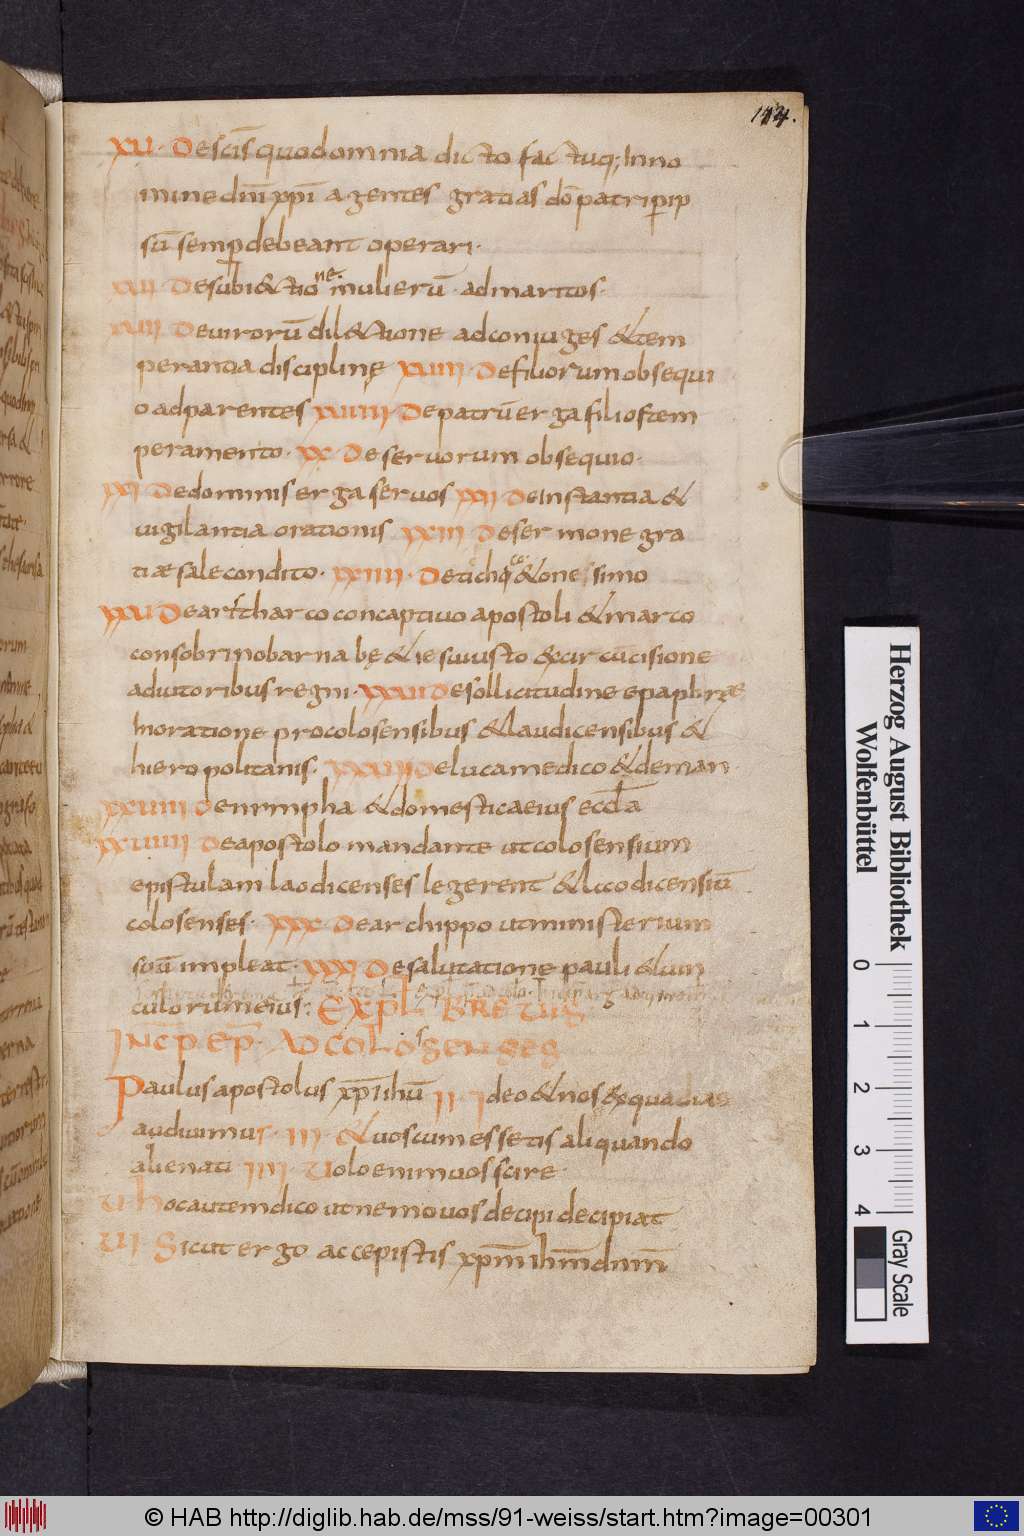 144.
XU. Descīs quod omnia dicto factuq; In no
mine dn̄i xp̄i agentes gratias dō patri p ip
sū semp debeant operari.
XUI Desubi&tione mulierū ad maritos.
XUII Deuirorū dil&tione ad coniuges &tem
perantia discipline XUIII. De filiorum obsequi
o ad parentes XUIIII. De patrū erga filios tem
peramento. XX. De seruorum obsequio.
XXI De dominis erga seruos XXII De Instantia &
uigilantia orationis XXIII De sermone gra
tiae sale condito. XXIIII. De &one simo
XXU De concaptiuo apostoli &marco
consobrino barnabę &iesu iusto &circūcisione
adiutoribus regni. XXUI De sollicitudine epaphrae
In oratione pro colosensibus &laudicensibus &
hieropolitanis. XXUII De luca medico &deman
XXUIII De nimpha &domestica eius
XXUIIII De apostolo mandante ut colosensium
epistulam laodicenses legerent &laodicensiū
colosenses. XXX De archippo ut ministerium
suū impleat. XXXI De salutatione pauli &uin
culorum eius: EXPL BREUES
INCP EP. AD COLOSENSES
Paulus apostolus xp̄i ihū II. Ideo &nos &qua dias
audiuimus. III. &uos cum essetis aliquando
alienati IIII Uolo enim uos scire.
U hoc autem dico ut nemo uos decipi decipiat
UI Sicut ergo accepistis xpm̄ ihm̄ dnm̄
Herzog August Bibliothek
Wolfenbüttel
0 1 2 3 4
Gray Scale
© HAB http://diglib.hab.de/mss/91-weiss/start.htm?image=00301